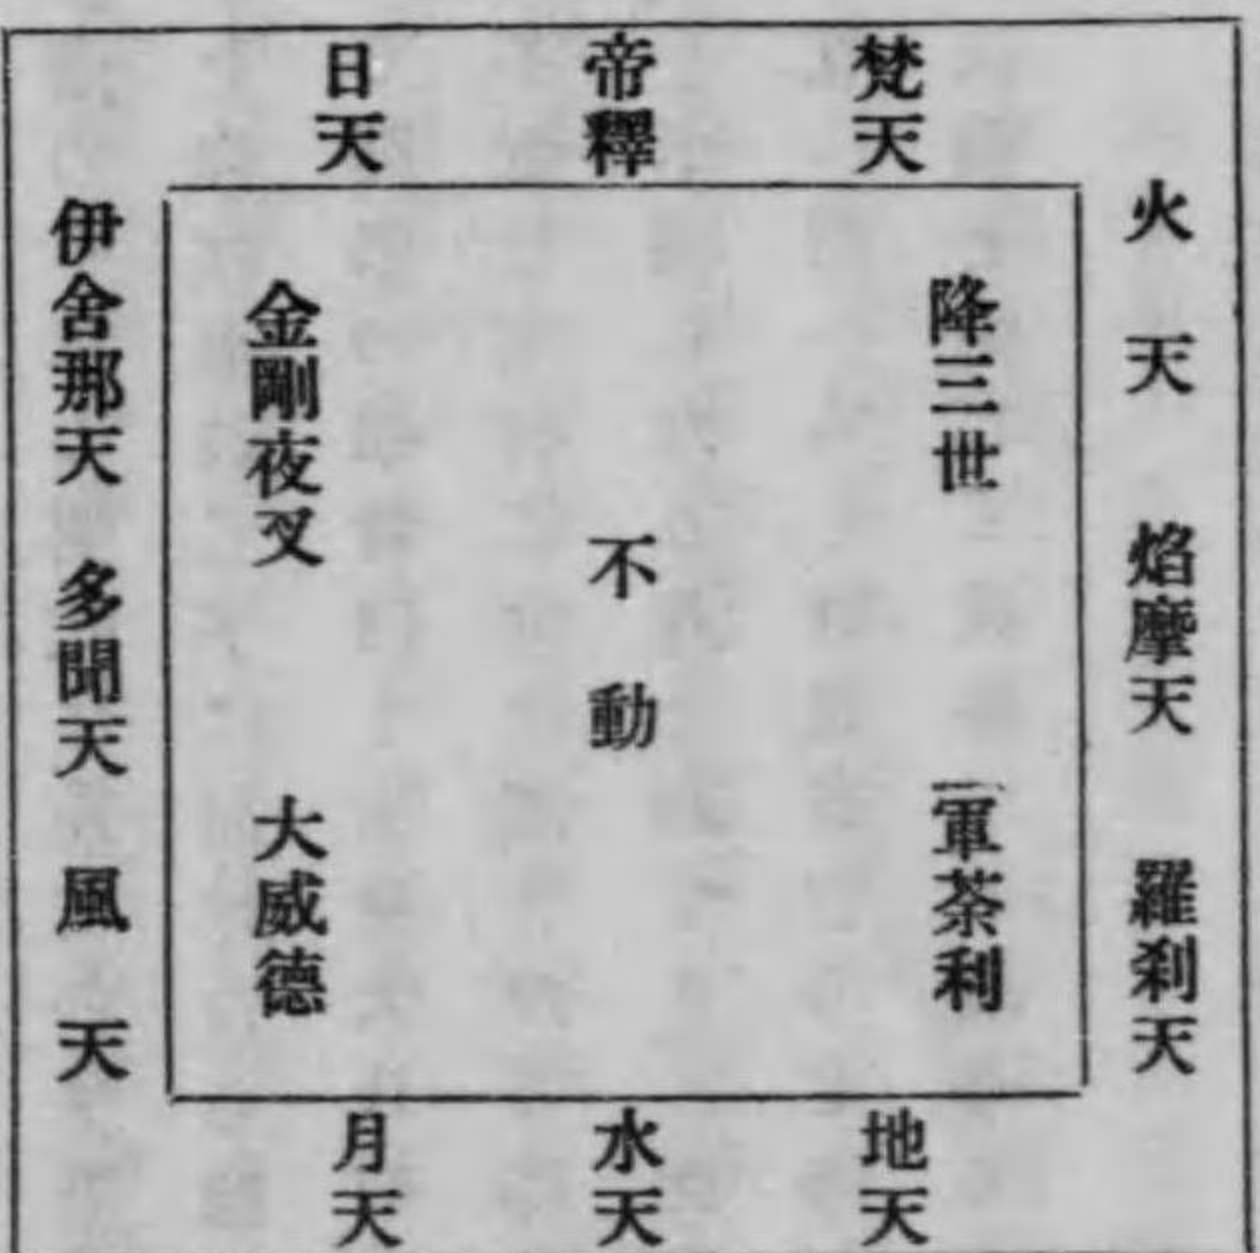 梵天
帝釋
日天
火天
焰摩天
羅刹天
降三世
軍荼利
不動
金剛夜叉
大威德
伊舍那天
多聞天
風天
地天
水天
月天